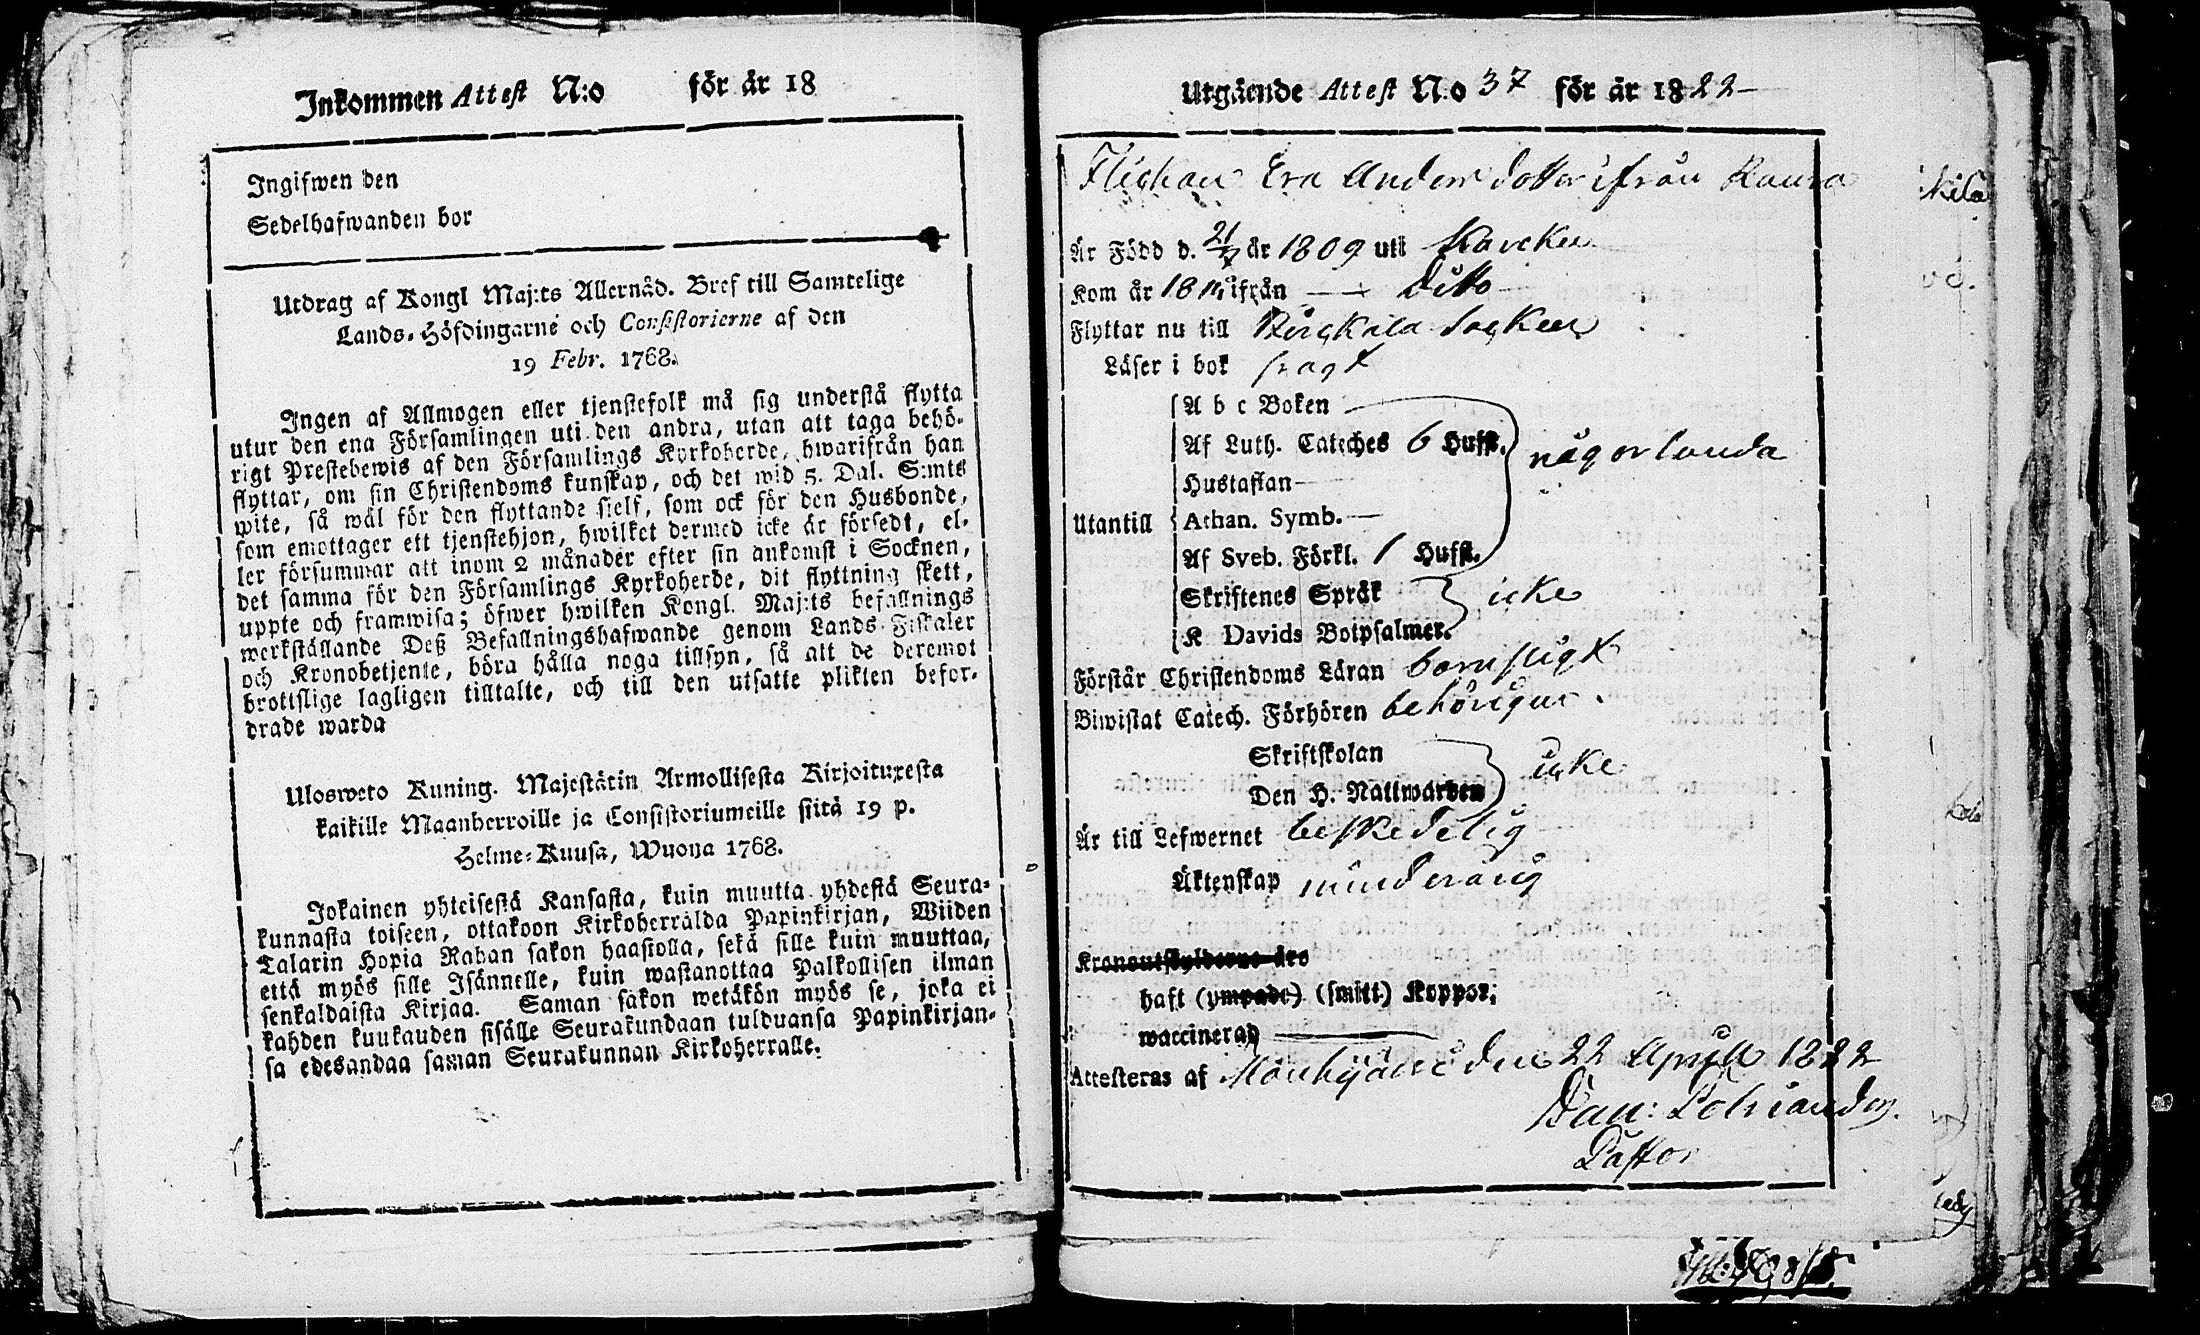 Inkommen Attest N:o för år 18
Ingifwen den
Sedelhafwanden bor
Utdrag af Kongl Maj:ts Allernåd. Bref till Samtelige
Lands-Höfdingarne och Consistorierne af den
19 Febr. 1768.
Ingen af Allmogen eller tjenstefolk må sig understå flytta
utur den ena Församlingen uti den andra, utan att taga behö-
rigt Prestebewis af den Församlings Kyrkoherde, hwarifrån han
flyttar, om sin Christendoms kunskap, och det wid 5. Dal. S:mts
wite, så wäl för den flyttande sielf, som ock för den Husbonde,
som emottager ett tjenstehjon, hwilket dermed icke är försedt, el-
ler försummar att inom 2 månader efter sin ankomst i Socknen,
det samma för den Församlings Kyrkoherde, dit flyttning skett,
uppte och framwisa; öfwer hwilken Kongl. Maj:ts befallnings
werkställande Deß Befallningshafwande genom Lands-Fiskaler
och Kronobetjente, böra hålla noga tillsyn, så att de deremot
brottslige lagligen tilltalte, och till den utsatte plikten befor-
drade warda
Ulosweto Kuning. Majestätin Armollisesta Kirjoituxesta
kaikille Maanherroille ja Consistoriumeille siitä 19 p.
Helme-Kuusa, Wuona 1768.
Jokainen yhteisestä Kansasta, kuin muutta yhdestä Seura-
kunnasta toiseen, ottakoon Kirkoherrälda Papinkirjan, Wiiden
Talarin Hopia Rahan sakon haastolla, sekä sille kuin muuttaa,
että myös sille Isännelle, kuin wastanottaa Palkollisen ilman
senkaldaista Kirjaa. Saman sakon wetäkön myös se, joka ei
kahden kuukauden sisälle Seurakundaan tulduansa Papinkirjan-
sa edesandaa saman Seurakunnan Kirkoherralle.
Utgående Attest No 37 för år 1822
Flickan Eva Anders dotter ifrån
Är Född d. 21/7 år 1809 uti
Kom år 18 ifrån Ditto
Flyttar nu till Birckala Socken
Läser i bok svagt
Utantill
A b c Boken
Af Luth. Cateches 6 Hufst. någorlunda
Hustaflan
Athan. Symb.
Af Sveb. Förkl. 1 Hufst.
Skriftenes Språk icke
K Davids Botpsalmer.
Förstår Christendoms Läran barnsligt
Biwistat Catech. Förhören behörigen
Skriftskolan icke
Den H. Nattwarden
Är till Lefwernet beskedelig
Äktenskap minderårig
Kronoutskylderne äro
haft (ympade) (smitt) Koppor,
waccinerad
Attesteras af den 22 April 1822
Dan:
Pastor